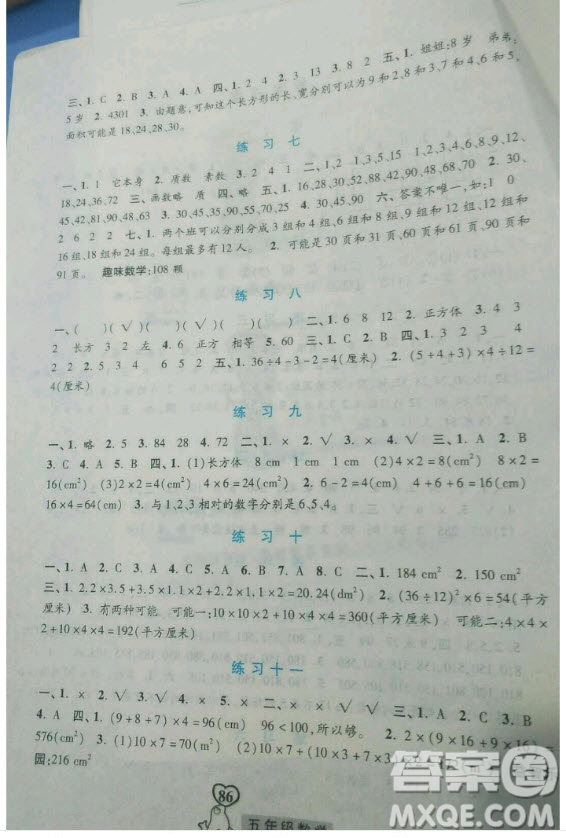 三、1. C 2. B 3. A 4. A 四、1. 2 4 2. 3 13 3. 8 2 五、1. 姐姐:8 岁 弟弟:
5 岁 2. 4301 3. 由题意,可知这个长方形的长、宽分别可以为 9 和 2,8 和 3,7 和 4,6 和 5,
面积可能是 18,24,28,30。
练 习 七
一、1. 1 它本身 2. 质数 素数 3. 2 4 1 二、1. 1,3,5,15 1,2,3,4,6,8,
18,24,36,72 三、画数略 质 四、略 五、1. 16,28,30,52,22,50,90,68,70 2. 30,
45,42,81,90,48,63 3. 30,45,15,35,55,20,50,90,70 六、答案不唯一。 1. 2 1 0
2 6 2 2 七、1. 两个班可以分别分成 3 组和 4 组,6 组和 8 组,
16 组,18 组和 24 组。每组最多有 12 人。 2. 可能是 30 页和 31 页,60 页和 61 页,90 页和
91 页。 趣味数学:108 颗
练 习 八
一、( ) (√) ( ) (√) ( ) ( ) 二、1. 6 8 12 2. 正方体 3. 4 3
2 长方 3 2 左 4. 正方 相等 5. 60 三、1. B 2. B 3. C 四、1. 3 4
2. 5 3 5. 4 3 4 6 5 2 五、1. 36÷4-3-2=4(厘米) 2. (5+4+3)×4÷12=
4(厘米)
练 习 九
一、1. 略 2. 5 3. 84 28 4. 72 二、1. × 2. √ 3. × 4. √ 三、1. A 2. B
3. C 4. A 5. B 四、1. (1)长方体 8 cm 1 cm 1 cm (2)4×2=8(cm²) 8×2=
16(cm²) (3)2×2=4(cm²) 4×6=24(cm²) 2. 6-2=4(cm) 4+6+6=16(cm)
16×4=64(cm) 3. 与 1、2、3 相对的数字分别是 6、5、4。
练 习 十
一、1. A 2. C 3. A 4. C 5. A 6. B 7. A 8. C 二、1. 184 cm² 2. 150 cm²
三、1. 2.2×3.5+3.5×1.1×2+2.2×1.1×2 2. (36÷12)²×6=54(平方
厘米) 3. 有两种可能 可能一:10×10×2+10×4×4=360(平方厘米) 可能二:4×4×
2+10×4×4=192(平方厘米)
练 习 十 一
一、1. × 2. √ 3. √ 4. × 5. × 二、× × √ √ 三、1. A 2. C 3. B
4. A 四、1. (9+8+7)×4=96(cm) 96<100,所以够。 2. 2×(9×16+9×16)=
576(cm²) 3. (1)10×7=70(m²) (2)10×7+(10×3+7×3)
园:216 cm²
86
五年级数学
答案圈
MXQE.COM